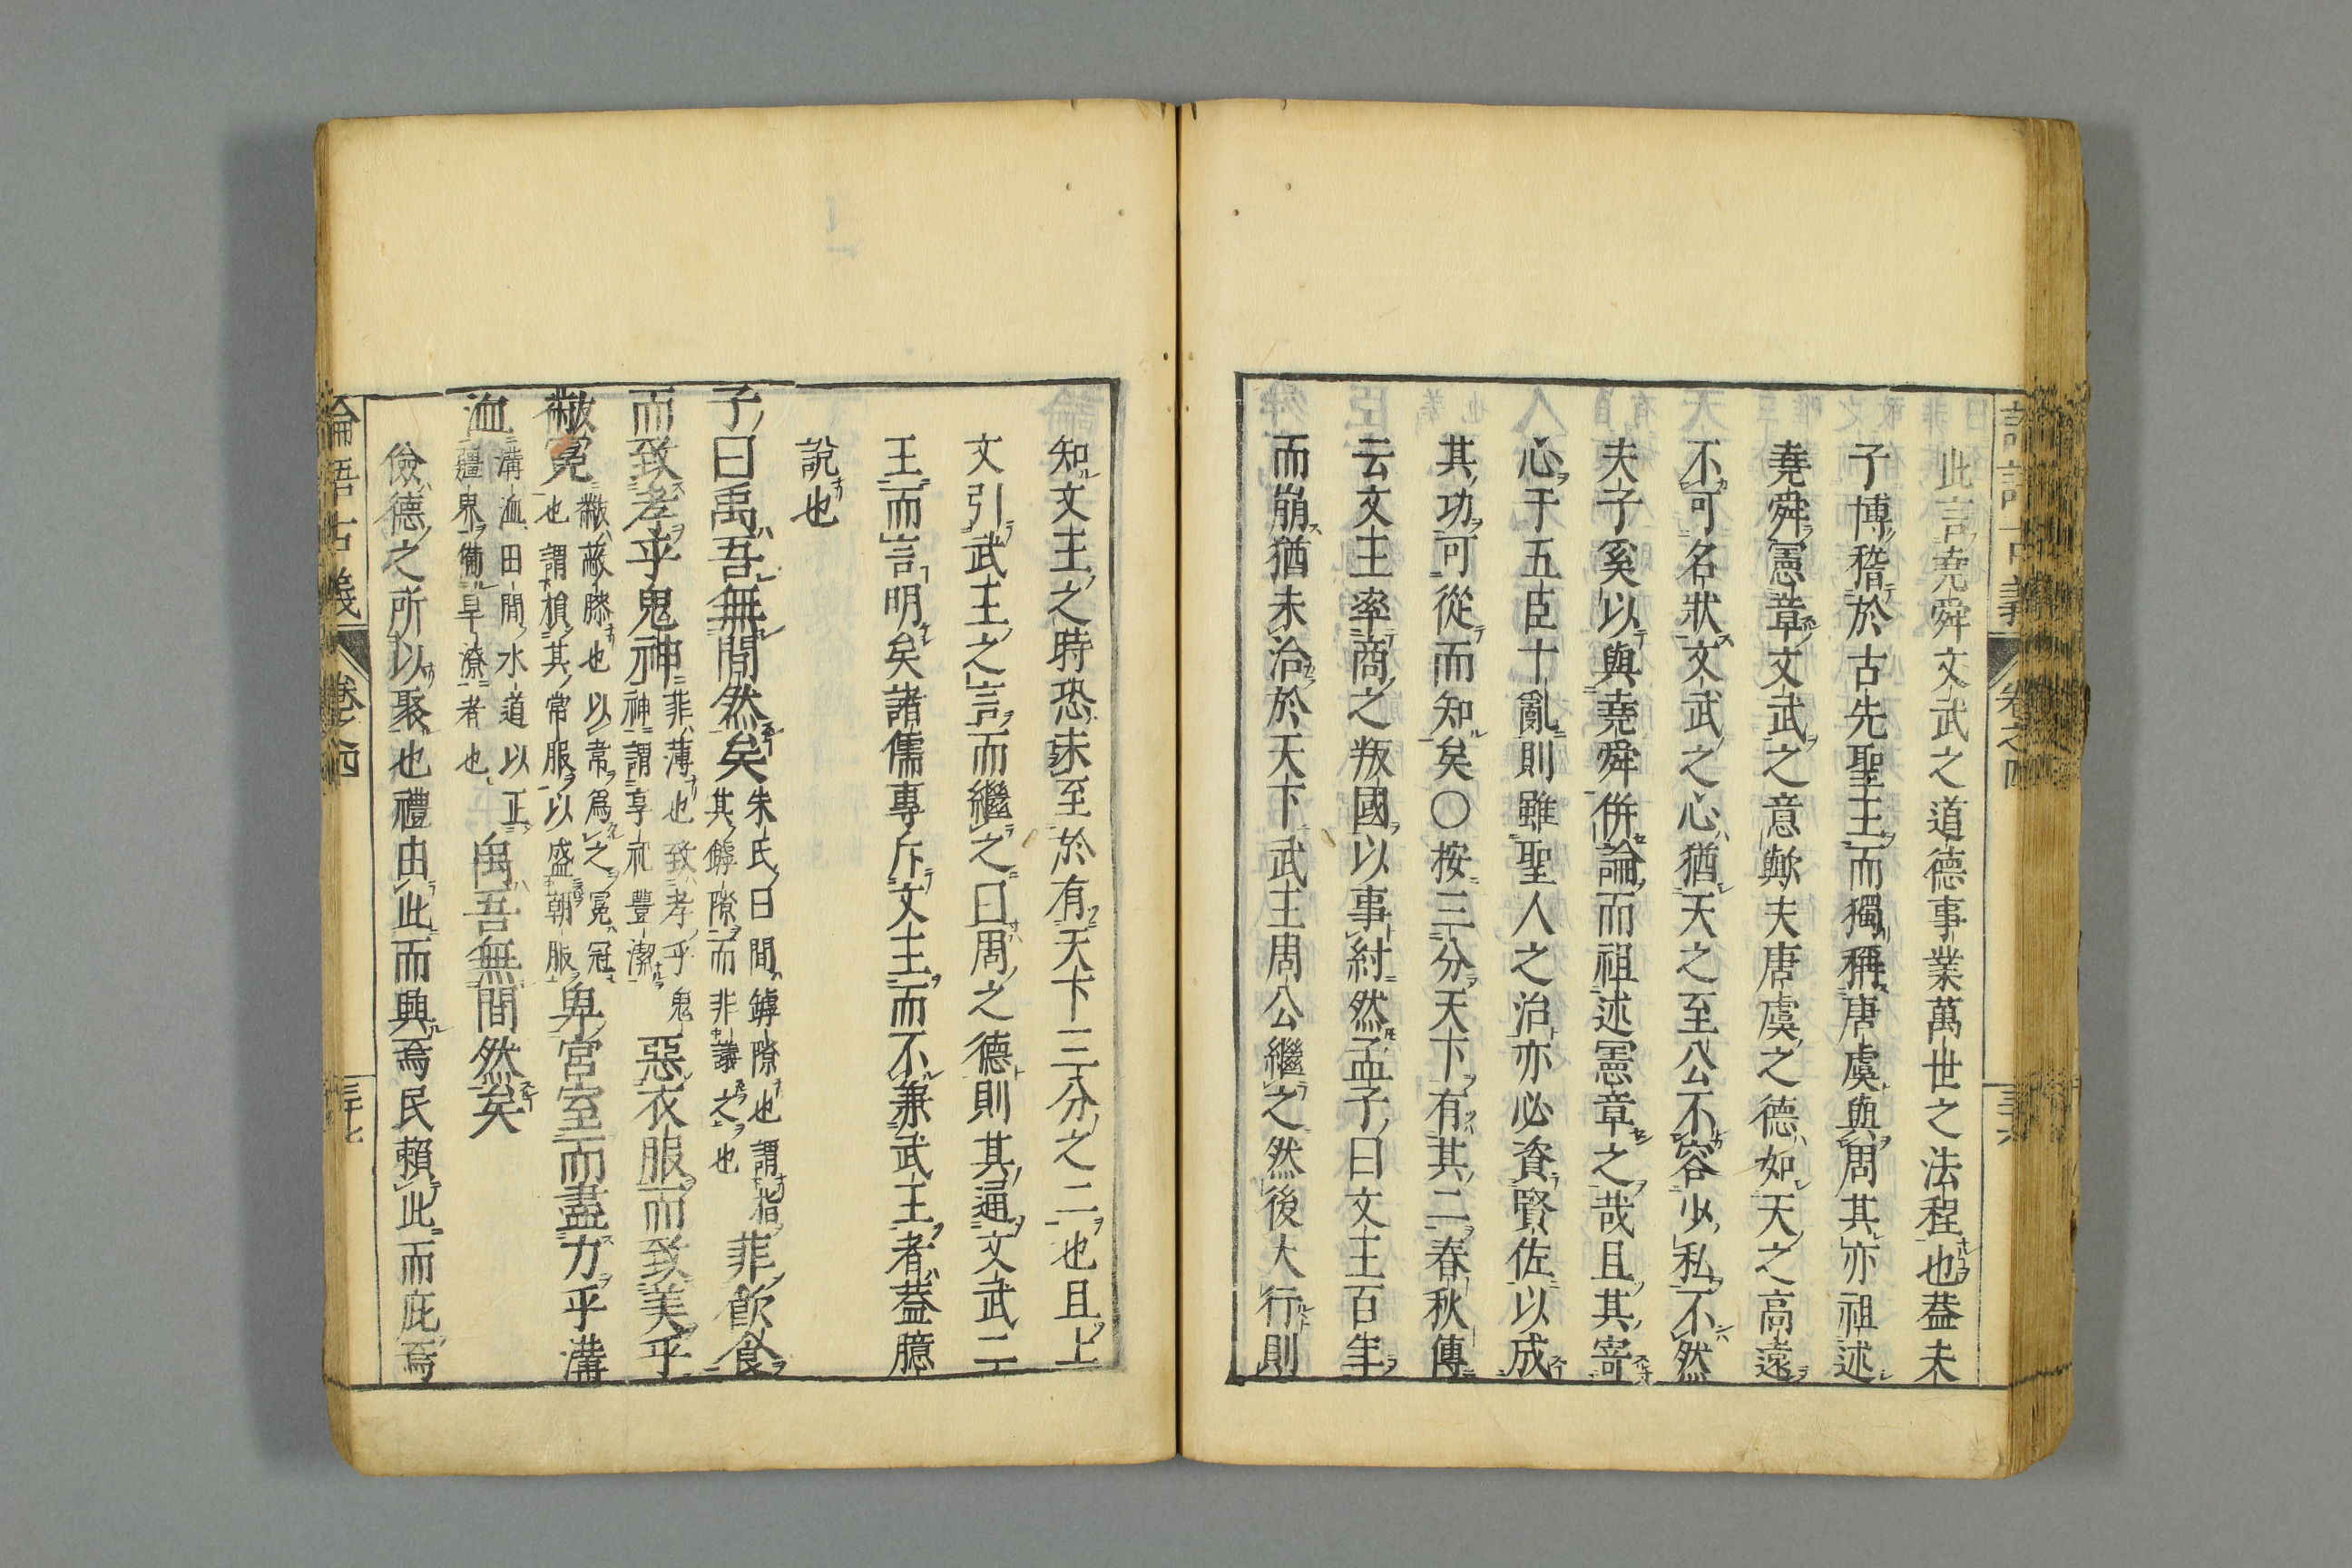 此言堯舜文武之道德事業萬世之法程也葢夫
子博稽於古先聖王而獨稱唐虞與周其亦祖述
堯舜憲章文武之意歟夫唐虞之德如天之高遠
不可名狀文武之心猶天之至公不容少私不然
夫子奚以與堯舜併論而祖述憲章之哉且其寄
心于五臣十亂則雖聖人之治亦必資賢佐以成
其功可從而知矣〇按三分天下有其二春秋傳
云文王率商之叛國以事紂然孟子曰文王百年
而崩猶未洽於天下武王周公繼之然後大行則
論語古義 卷之四 三十六
知文王之時恐未至於有天下三分之二也且上
文引武王之言而繼之曰周之德則其通文武二
王而言明矣諸儒專斥文王而不兼武王者葢臆
說也
子曰禹吾無間然矣 朱氏曰間罅隙也謂指
其罅隙而非議之也 非飲食
而致孝乎鬼神 非薄也致孝乎鬼
神謂享祀豐潔 惡衣服而致美乎
黻冕 黻蔽膝也以韋爲之冕冠
也謂損其常服以盛朝服 卑宮室而盡力乎溝
洫 溝洫田間水道以正
疆界備旱潦者也 禹吾無間然矣
儉德之所以聚也禮由此而興焉民賴此而庇焉
論語古義 卷之四 三十七